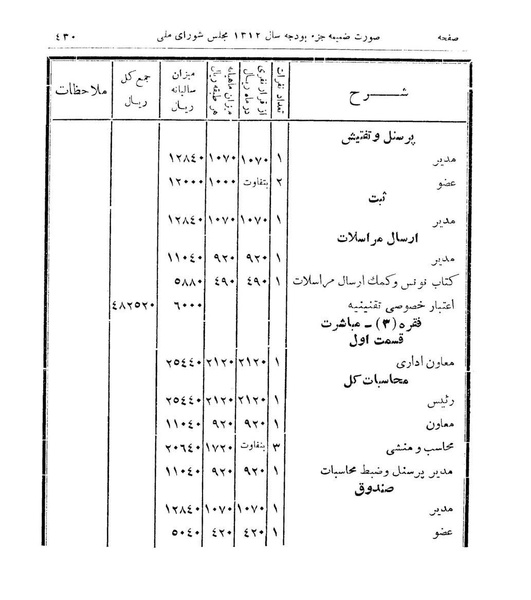 صفحه صورت ضمیمه جزء بودجه سال ۱۳۱۲ مجلس شورای ملی ٤٣٠
شــرح تعداد نفرات از قرار نفری در ماه ریال میزان ماهیانه هر طبقه ریال میزان سالیانه ریال جمع کل ریال ملاحظات
پرسنل و تفتیش
مدیر ۱ ۱۰۷۰ ۱۰۷۰ ۱۲۸٤۰
عضو ۲ بتفاوت ۱۰۰۰ ۱۲۰۰۰
ثبت
مدیر ۱ ۱۰۷۰ ۱۰۷۰ ۱۲۸٤۰
ارسال مراسلات
مدیر ۱ ۹۲۰ ۹۲۰ ۱۱۰٤۰
کتاب نویس وکمك ارسال مراسلات ۱ ٤۹۰ ٤۹۰ ۵۸۸۰
اعتبار خصوصی تقنینیه ٦۰۰۰ ٤۸۲۵۲۰
فقره (۳) ـ مباشرت
قسمت اول
معاون اداری ۱ ۲۱۲۰ ۲۱۲۰ ۲۵٤٤۰
محاسبات کل
رئیس ۱ ۲۱۲۰ ۲۱۲۰ ۲۵٤٤۰
معاون ۱ ۹۲۰ ۹۲۰ ۱۱۰٤۰
محاسب و منشی ۳ بتفاوت ۱۷۲۰ ۲۰٦٤۰
مدیر پرسنل وضبط محاسبات ۱ ۹۲۰ ۹۲۰ ۱۱۰٤۰
صندوق
مدیر ۱ ۱۰۷۰ ۱۰۷۰ ۱۲۸٤۰
عضو ۱ ٤۲۰ ٤۲۰ ۵۰٤۰